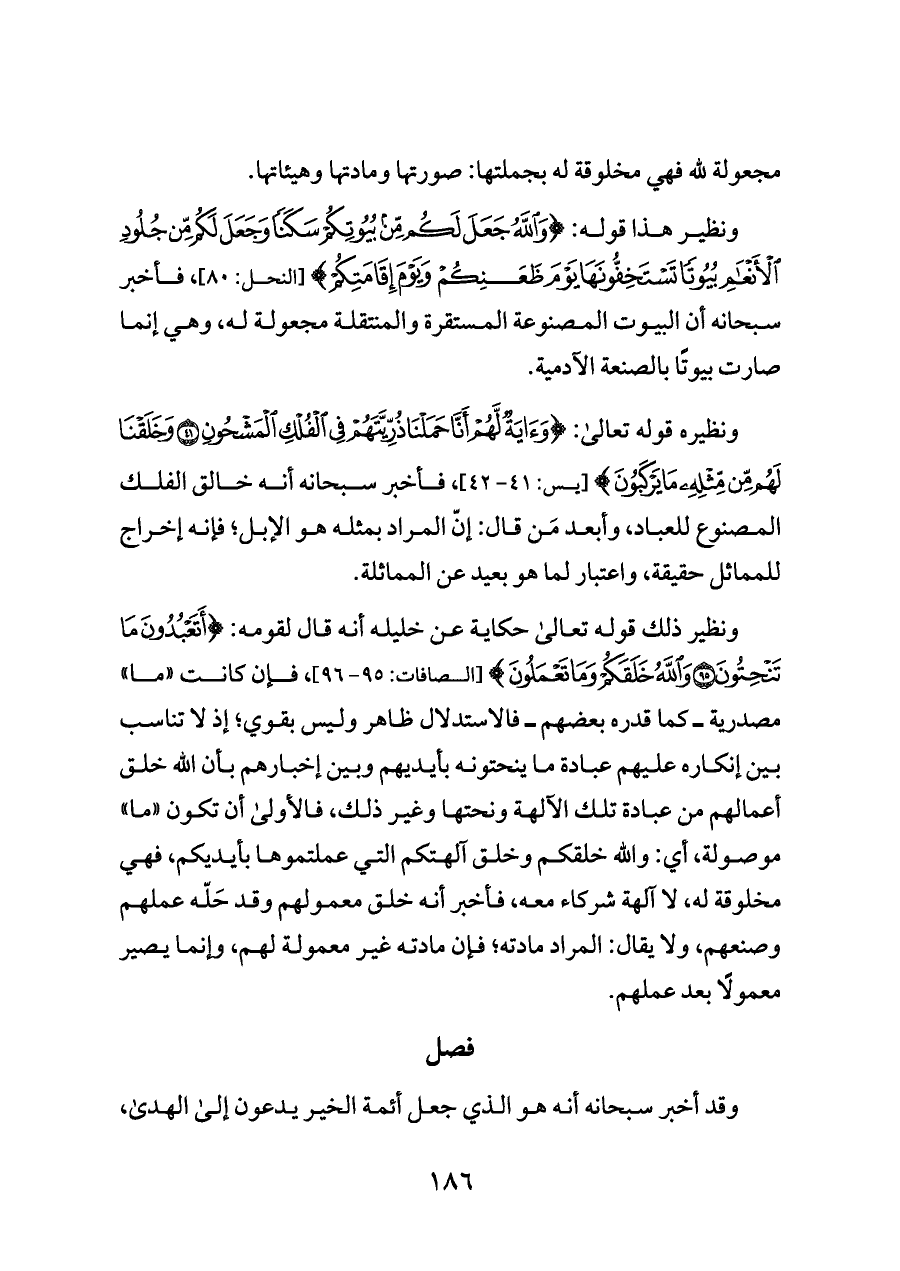 مجعولة لله فهي مخلوقة له بجملتها: صورتها ومادتها وهيئاتها.
ونظير هذا قوله: ﴿وَٱللَّهُ جَعَلَ لَكُم مِّنۢ بُيُوتِكُمْ سَكَنًا وَجَعَلَ لَكُم مِّن جُلُودِ
ٱلْأَنْعَٰمِ بُيُوتًا تَسْتَخِفُّونَهَا يَوْمَ ظَعْنِكُمْ وَيَوْمَ إِقَامَتِكُمْ﴾ [النحل: ٨٠]، فأخبر
سبحانه أن البيوت المصنوعة المستقرة والمنتقلة مجعولة له، وهي إنما
صارت بيوتًا بالصنعة الآدمية.
ونظيره قوله تعالىٰ: ﴿وَءَايَةٌ لَّهُمْ أَنَّا حَمَلْنَا ذُرِّيَّتَهُمْ فِي ٱلْفُلْكِ ٱلْمَشْحُونِ ٤١ وَخَلَقْنَا
لَهُم مِّن مِّثْلِهِۦ مَا يَرْكَبُونَ﴾ [يس: ٤١- ٤٢]، فأخبر سبحانه أنه خالق الفلك
المصنوع للعباد، وأبعد مَن قال: إنّ المراد بمثله هو الإبل؛ فإنه إخراج
للمماثل حقيقة، واعتبار لما هو بعيد عن المماثلة.
ونظير ذلك قوله تعالىٰ حكاية عن خليله أنه قال لقومه: ﴿أَتَعْبُدُونَ مَا
تَنْحِتُونَ ٩٥ وَٱللَّهُ خَلَقَكُمْ وَمَا تَعْمَلُونَ﴾ [الصافات: ٩٥- ٩٦]، فإن كانت «ما»
مصدرية ـ كما قدره بعضهم ـ فالاستدلال ظاهر وليس بقوي؛ إذ لا تناسب
بين إنكاره عليهم عبادة ما ينحتونه بأيديهم وبين إخبارهم بأن الله خلق
أعمالهم من عبادة تلك الآلهة ونحتها وغير ذلك، فالأولىٰ أن تكون «ما»
موصولة، أي: والله خلقكم وخلق آلهتكم التي عملتموها بأيديكم، فهي
مخلوقة له، لا آلهة شركاء معه، فأخبر أنه خلق معمولهم وقد حَلّه عملهم
وصنعهم، ولا يقال: المراد مادته؛ فإن مادته غير معمولة لهم، وإنما يصير
معمولًا بعد عملهم.
فصل
وقد أخبر سبحانه أنه هو الذي جعل أئمة الخير يدعون إلىٰ الهدىٰ،
١٨٦